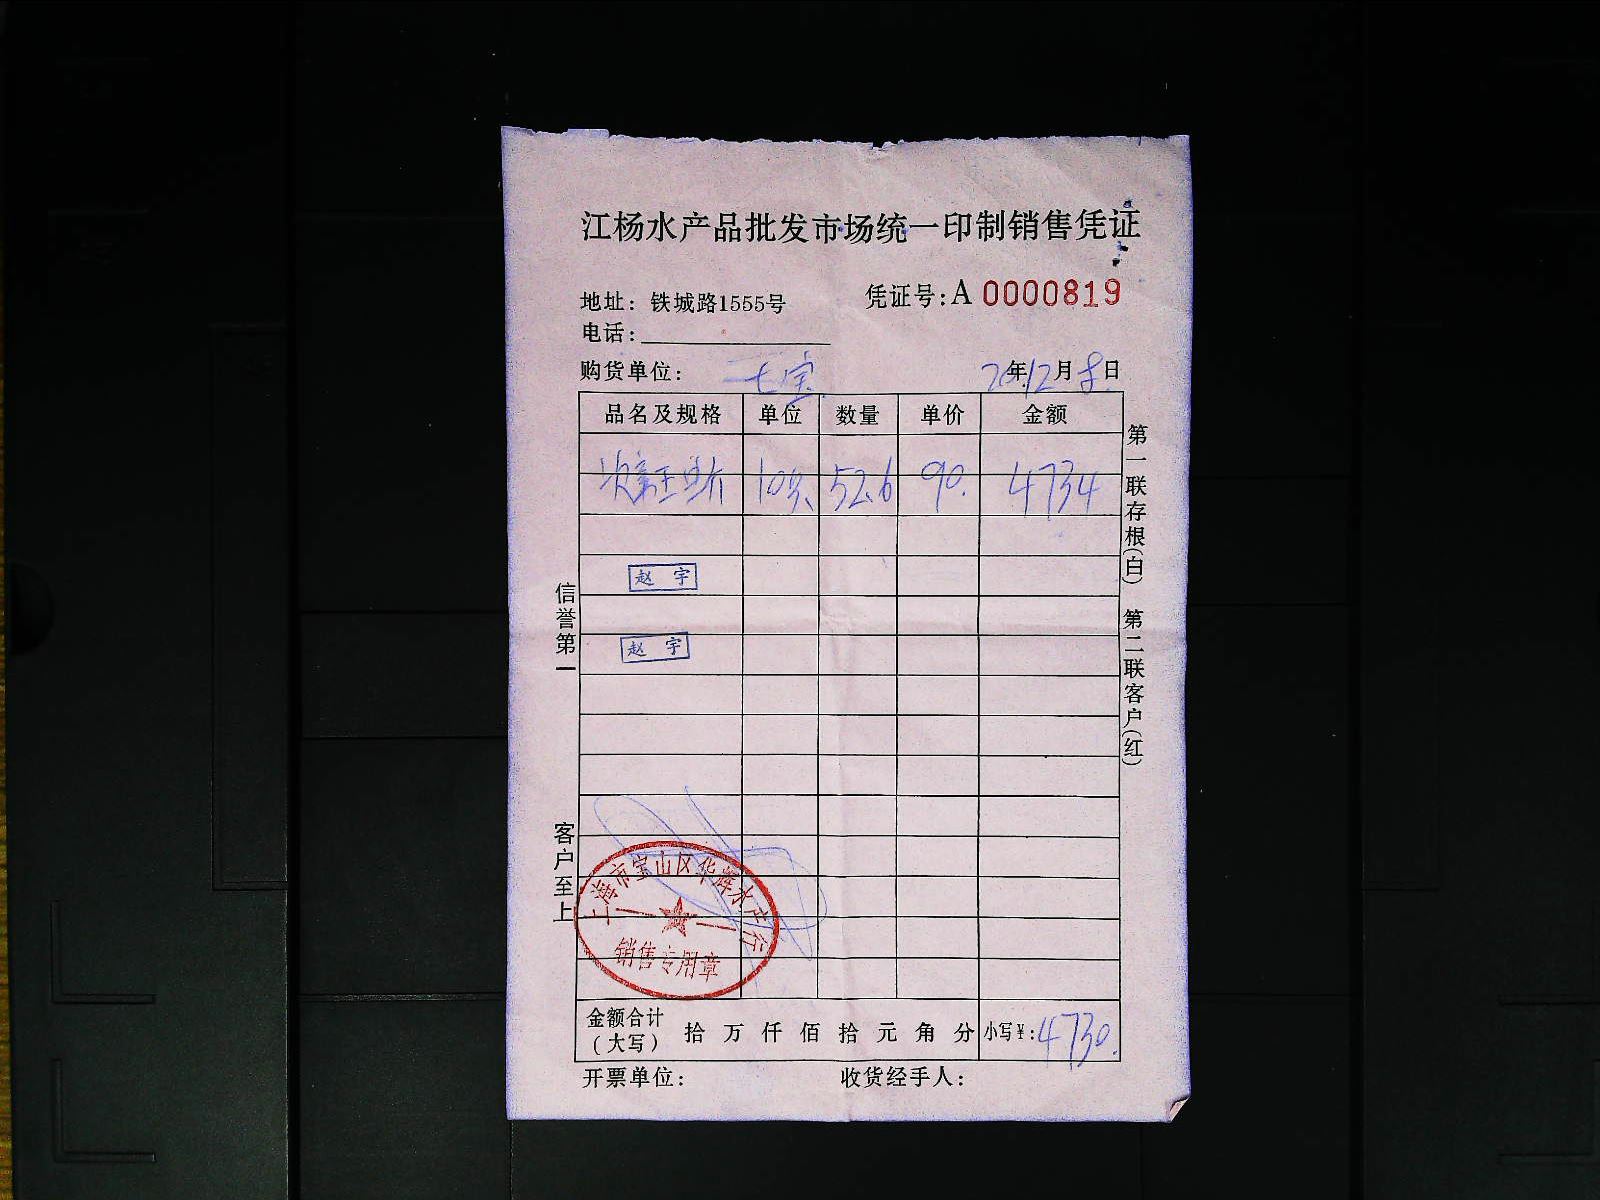 江杨水产品批发市场统一印制销售凭证
地址：铁城路1555号
凭证号：A 0000819
电话：
购货单位： 七宝
20年12月8日
品名及规格 单位 数量 单价 金额
10只 52.6 90. 4734
赵 宇
赵 宇
信誉第一
客户至上
第一联存根(白) 第二联客户(红)
上海市宝山区华辉水产行
销售专用章
金额合计（大写） 拾 万 仟 佰 拾 元 角 分 小写￥：4730.
开票单位： 收货经手人：